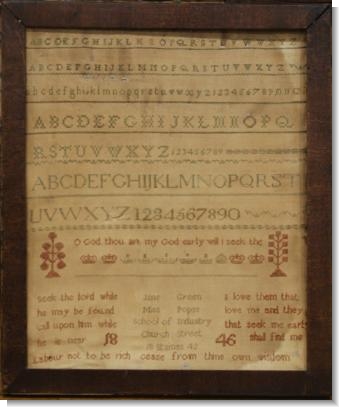 ABCDEFGHIJKLMNOPQRSTUVWXYZ
ABCDEFGHIJKLMNOPQRSTUVWXYZ
abcdefghijklmnopqrstuvwxyz
ABCDEFGHIJKLMNOPQ
RSTUVWXYZ 123456789
ABCDEFGHIJKLMNOPQRST
UVWXYZ1234567890
O God thou art my God early will i seek the
seek the lord while Jane Green i love them that
he may be found Miss Popes love me and they
call upon him while School of Industry that seek me early
he is near 18 Church Street 46 shall find me
St James
Labour not to be rich cease from thine own wisdom